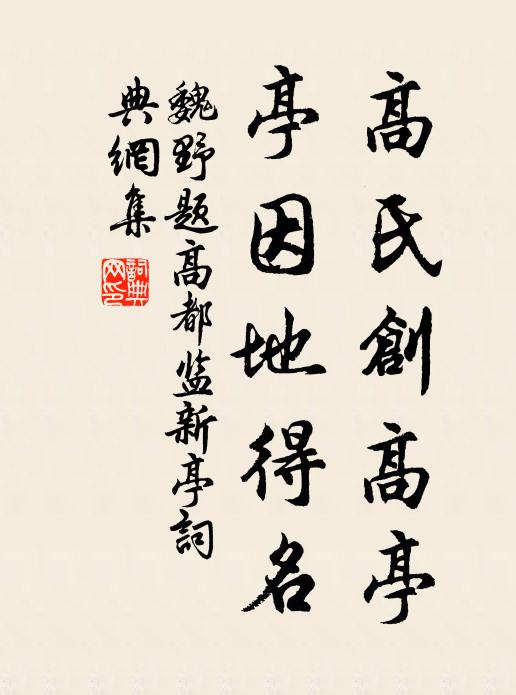 高氏創高亭
亭因地得名
魏野题高都监新亭詞
典網集
詞典
网印